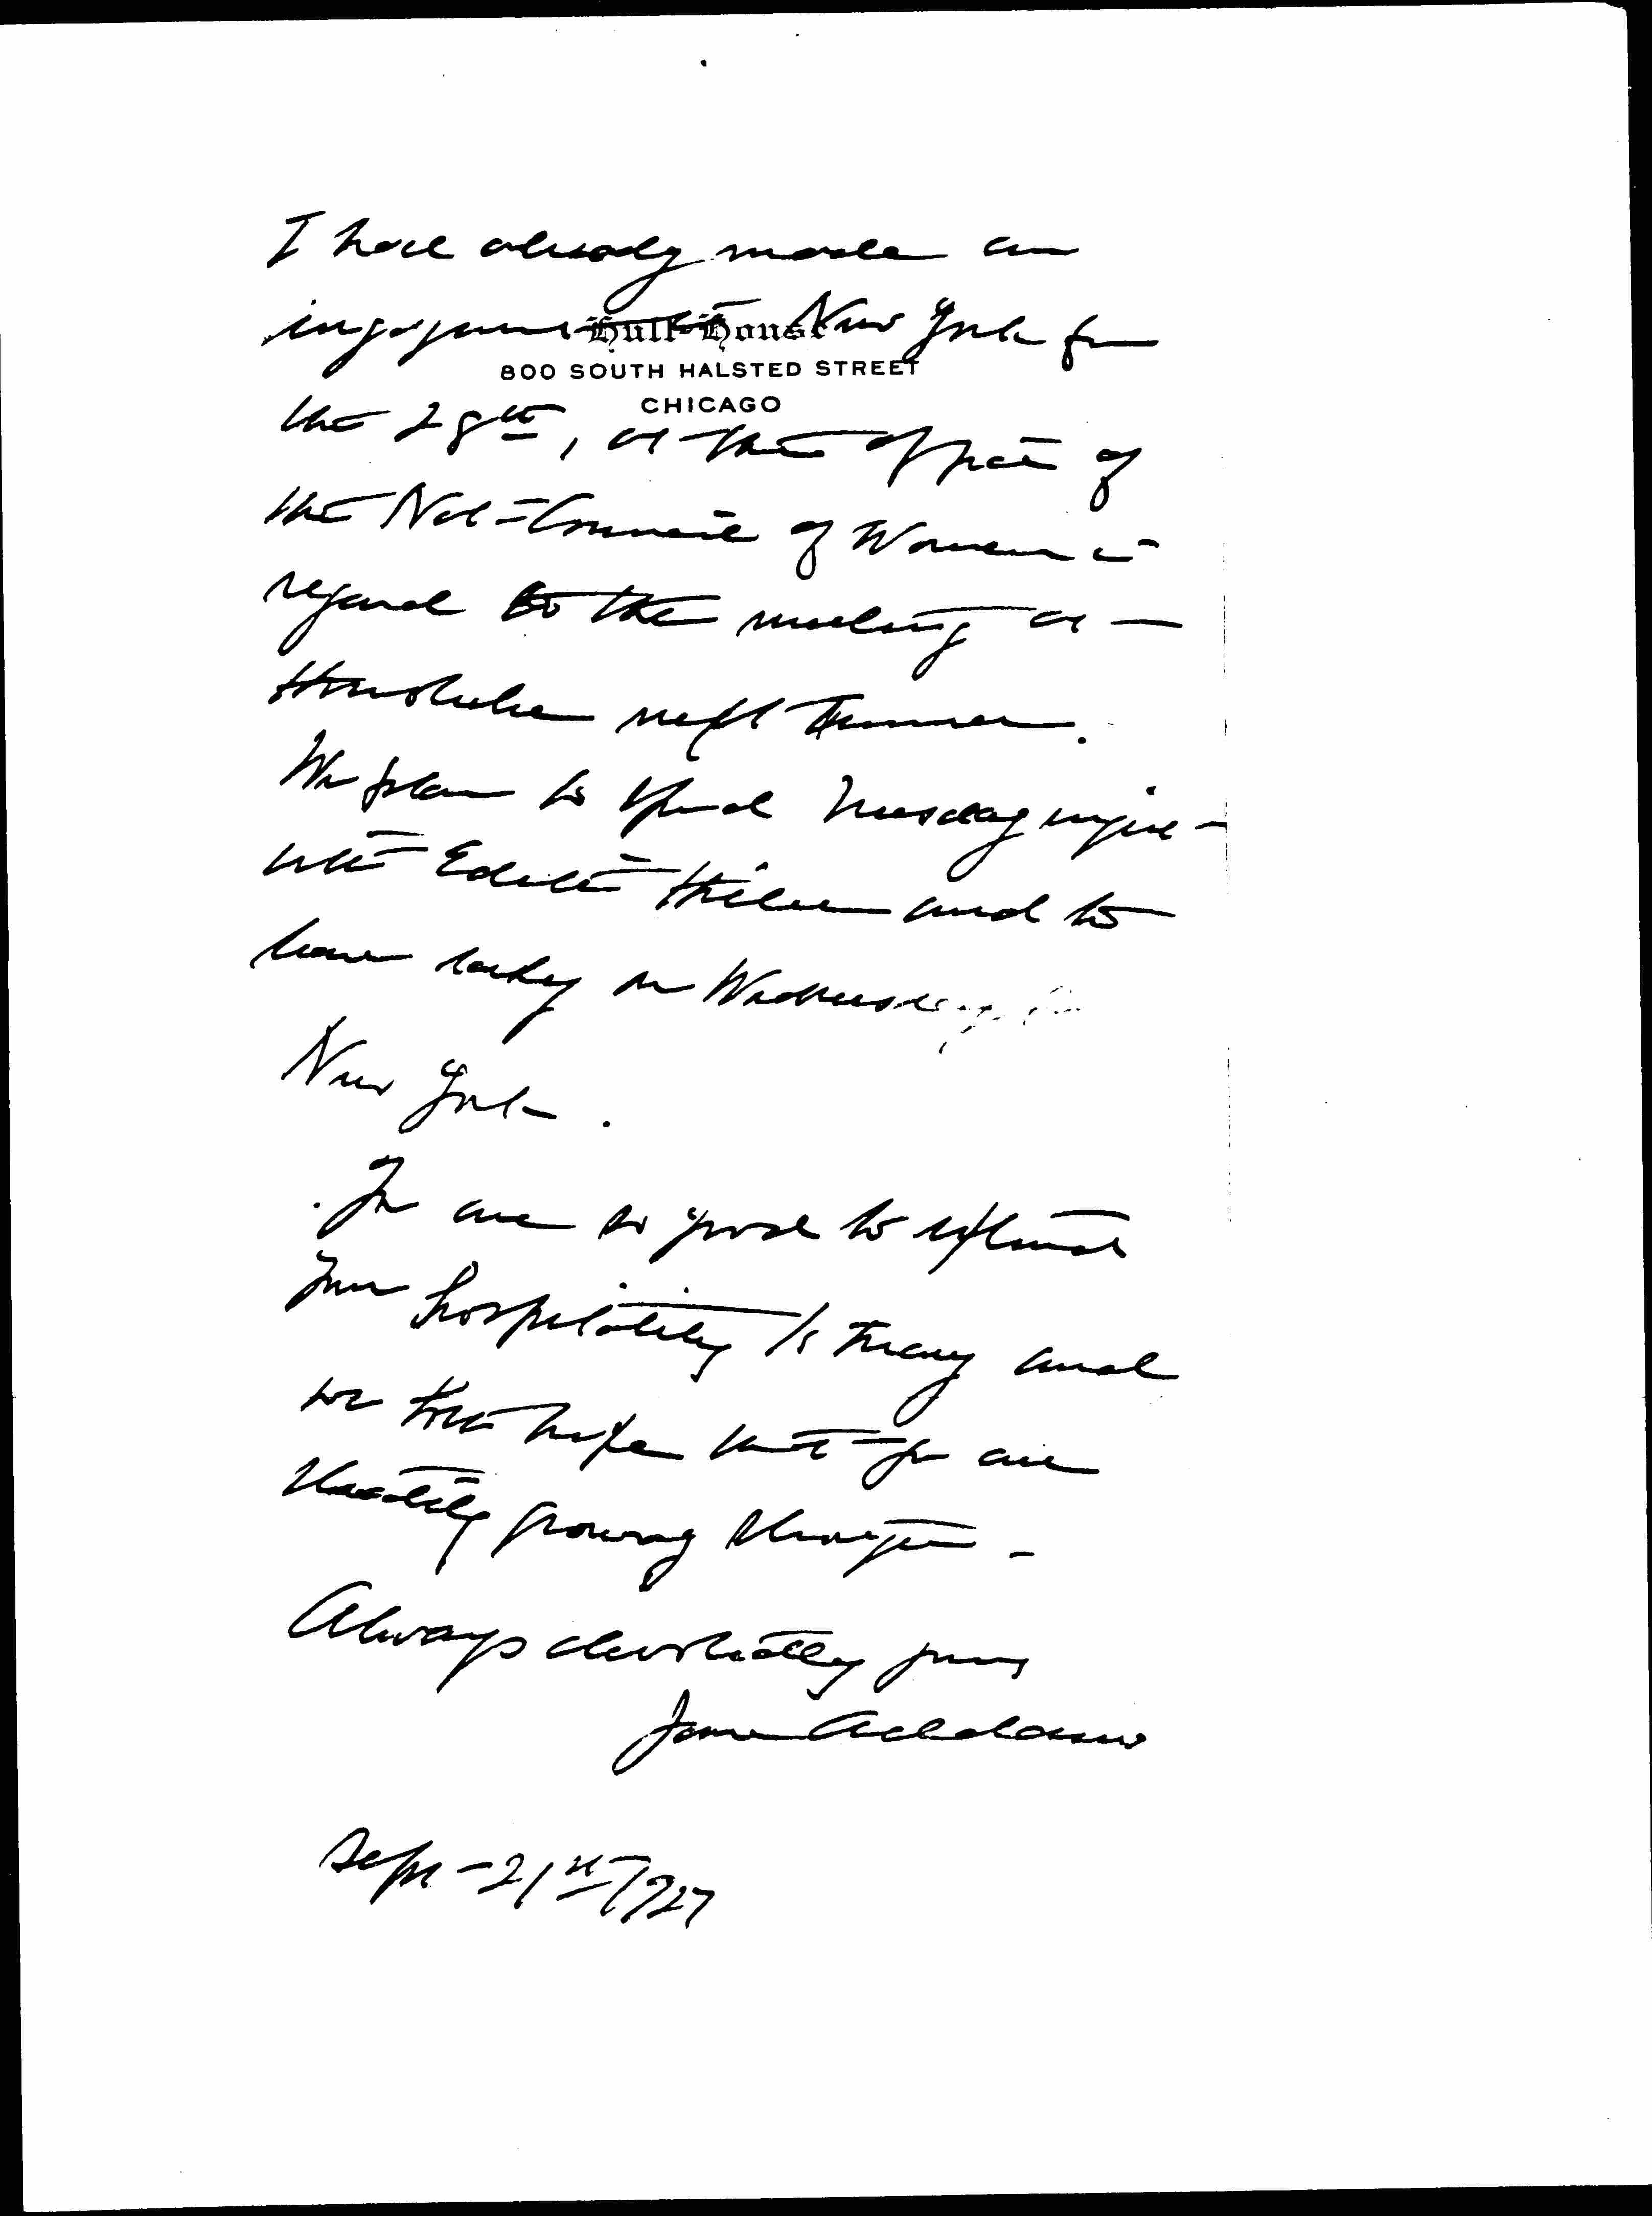 I have already made an
engagement in New York for
Hull-House
800 SOUTH HALSTED STREET
CHICAGO
the 28th, at the office of
the Nat-Council of Women in
regard to the meeting at
Honolulu next summer.
We plan to spend Tuesday night
with Edith and to
leave early on Wednesday for
New York.
You are so good to extend
your hospitality to Mary and
we both hope that you are
steadily growing stronger -
Always devotedly yours
Jane Addams
Sept - 21st 1927